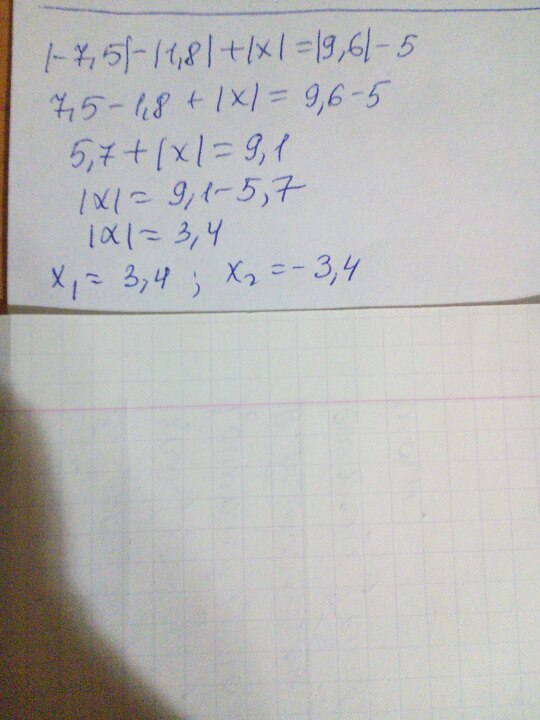 |-7,5|-|1,8|+|x|=|9,6|-5
7,5-1,8+|x|=9,6-5
5,7+|x|=9,1
|x|=9,1-5,7
|x|=3,4
x₁=3,4; x₂=-3,4